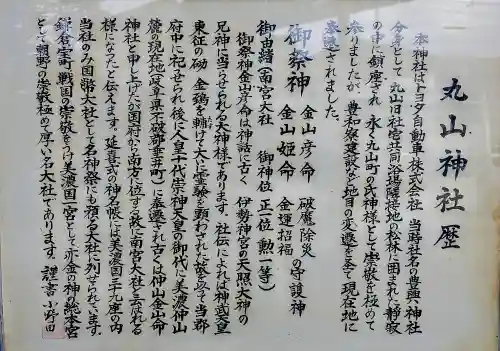 丸山神社歴
本神社はトヨタ自動車株式会社 当時社名の豊興神社
分祀として 丸山旧社宮共同浴場隣接地の松林に囲まれた静寂
の中に鎮座され 永く丸山町の氏神様として崇敬を極めて
参りましたが、豊和寮建設など地目の変遷を経て現在地に
奉遷されました。
御祭神 金山彦命 破魔除災
金山姫命 金運招福 の守護神
御由緒(南宮大社 御神位 正一位 勲一等)
御祭神金山彦命は神話に古く 伊勢神宮の天照大神の
兄神に当らせられる大神様であります。社伝によれば神武天皇
東征の砌 金鵄を輔けて大いに霊験を顕わされた故を以て当郡
府中に祀らせられ後に人皇十代崇神天皇の御代に美濃仲山
麓の現在地(岐阜県不破郡垂井町)に奉遷され古くは仲山金山彦
神社と申し上げたが国府から南方に位する故に南宮大社と云われる
様になったと伝えます。延喜式の神名帳には美濃国三十九座の内
当社のみ国幣大社として名神祭にも預る大社に列せられています
鎌倉室町戦国の崇敬をうけ美濃国一宮として亦金の神の総本宮
として朝野の崇敬極めて厚い名大社であります。 謹書 小野田